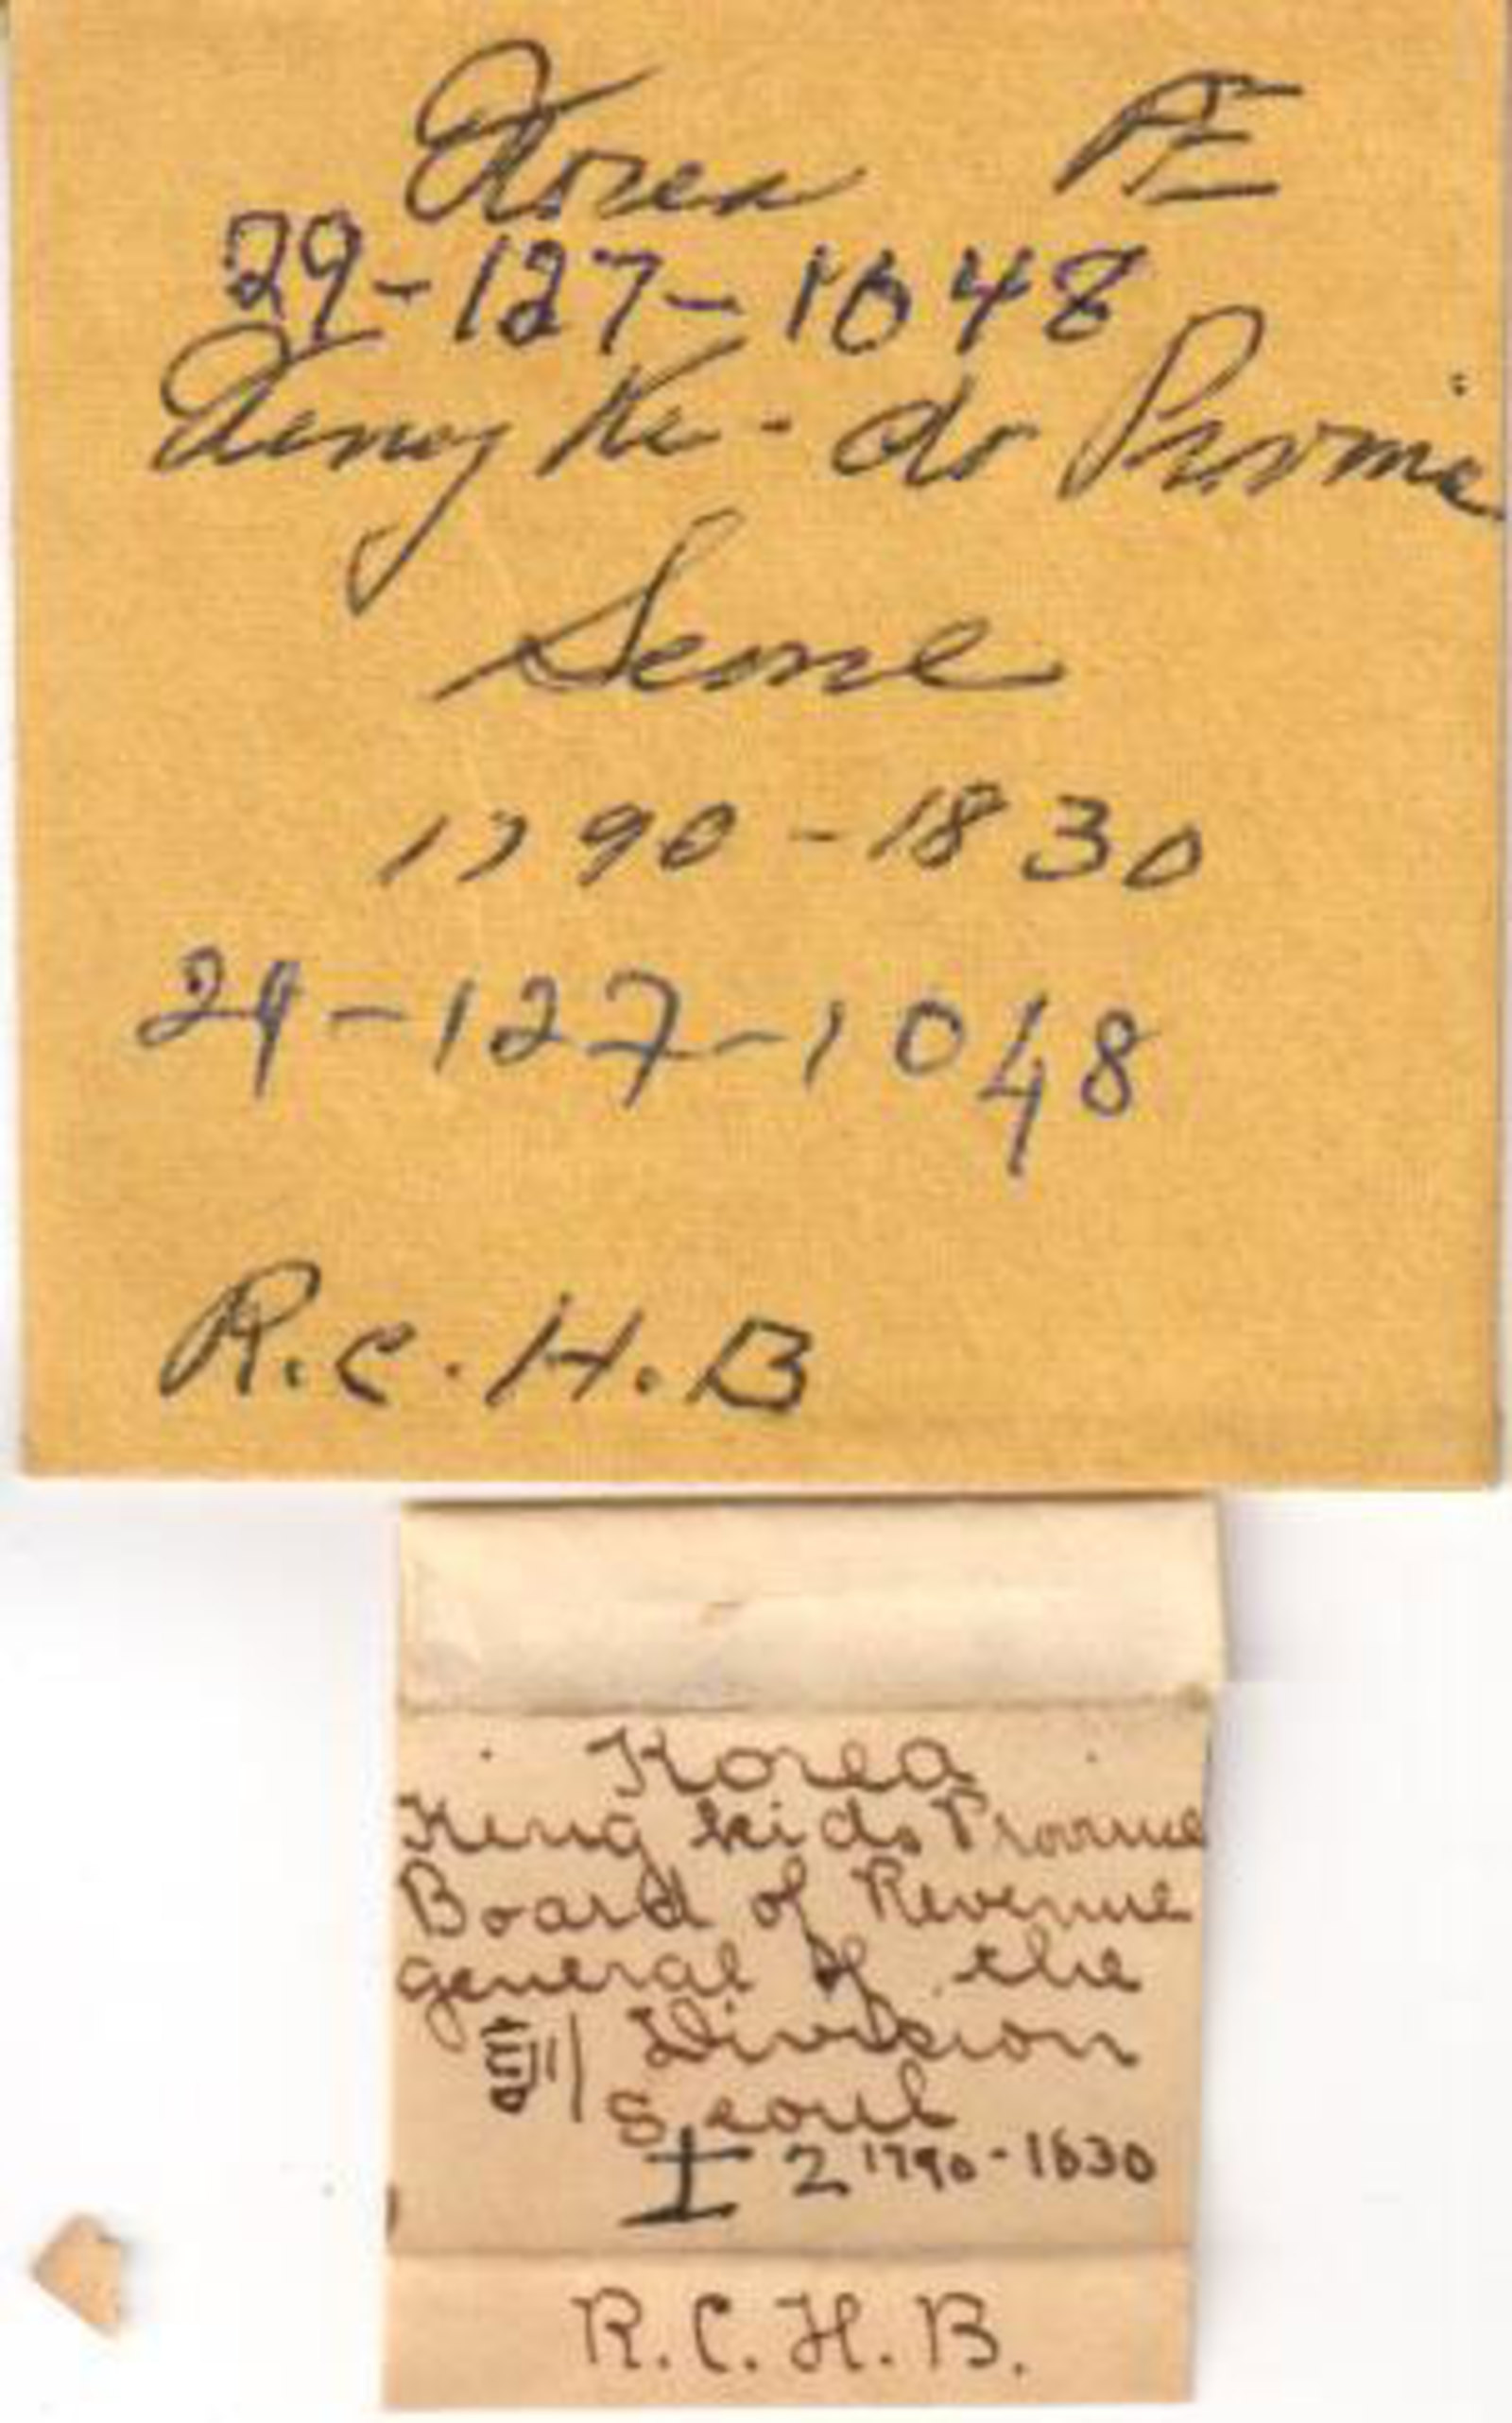 Korea Æ
29-127-1048
Keng Ki-do Provinc
Seoul
1790-1830
29-127-1048
R.C.H.B
Korea
Keng kido Province
Board of Revenue
general of the
訓 Division
Seoul
土 2 1790-1830
R.C.H.B.